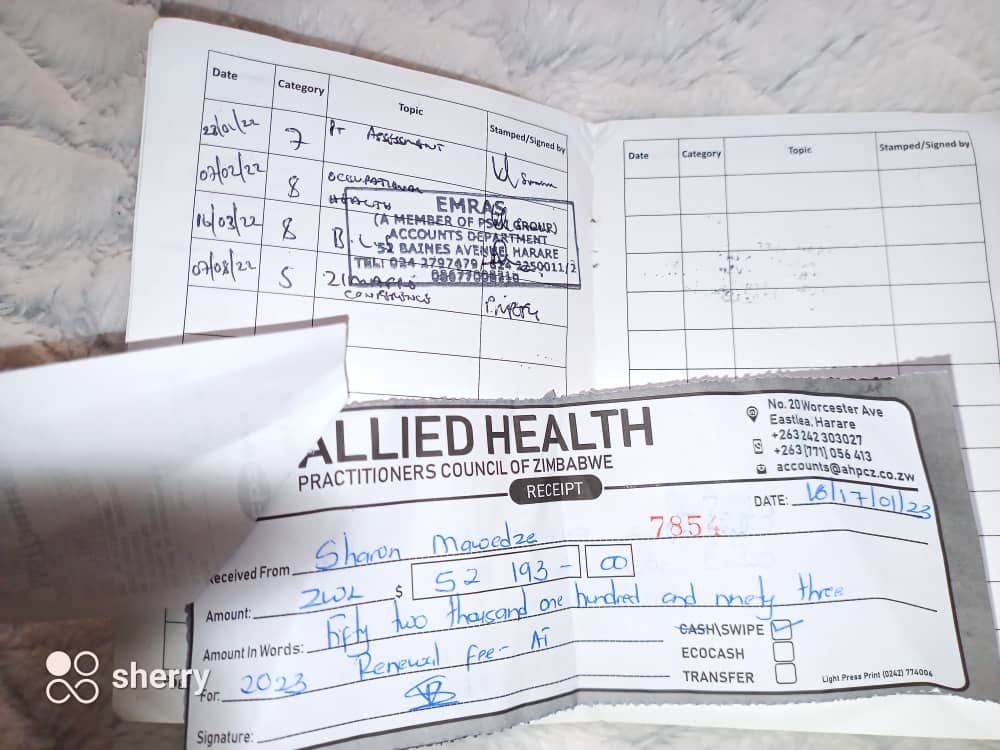 Date Category Topic Stamped/Signed by
22/01/22 7 PT ASSESSMENT
07/02/22 8 OCCUPATIONAL
HEALTH
16/03/22 8 B.L.S
07/08/22 5 CONFERENCE
EMRAS
(A MEMBER OF GROUP)
ACCOUNTS DEPARTMENT
52 BAINES AVENUE, HARARE
TEL: 024 2797479
Date Category Topic Stamped/Signed by
ALLIED HEALTH
PRACTITIONERS COUNCIL OF ZIMBABWE
RECEIPT
No. 20 Worcester Ave
Eastlea, Harare
+263 242 303027
+263 (771) 056 413
accounts@ahpcz.co.zw
DATE: 18/17/01/23
7854
Received From Sharon Mawedze
Amount: ZWL $ 52 193 - 00
Amount In Words: Fifty two thousand one hundred and ninety three
For: 2023 Renewal fee - AT
CASH\SWIPE
ECOCASH
TRANSFER
Signature:
Light Press Print (0242) 774006
sherry